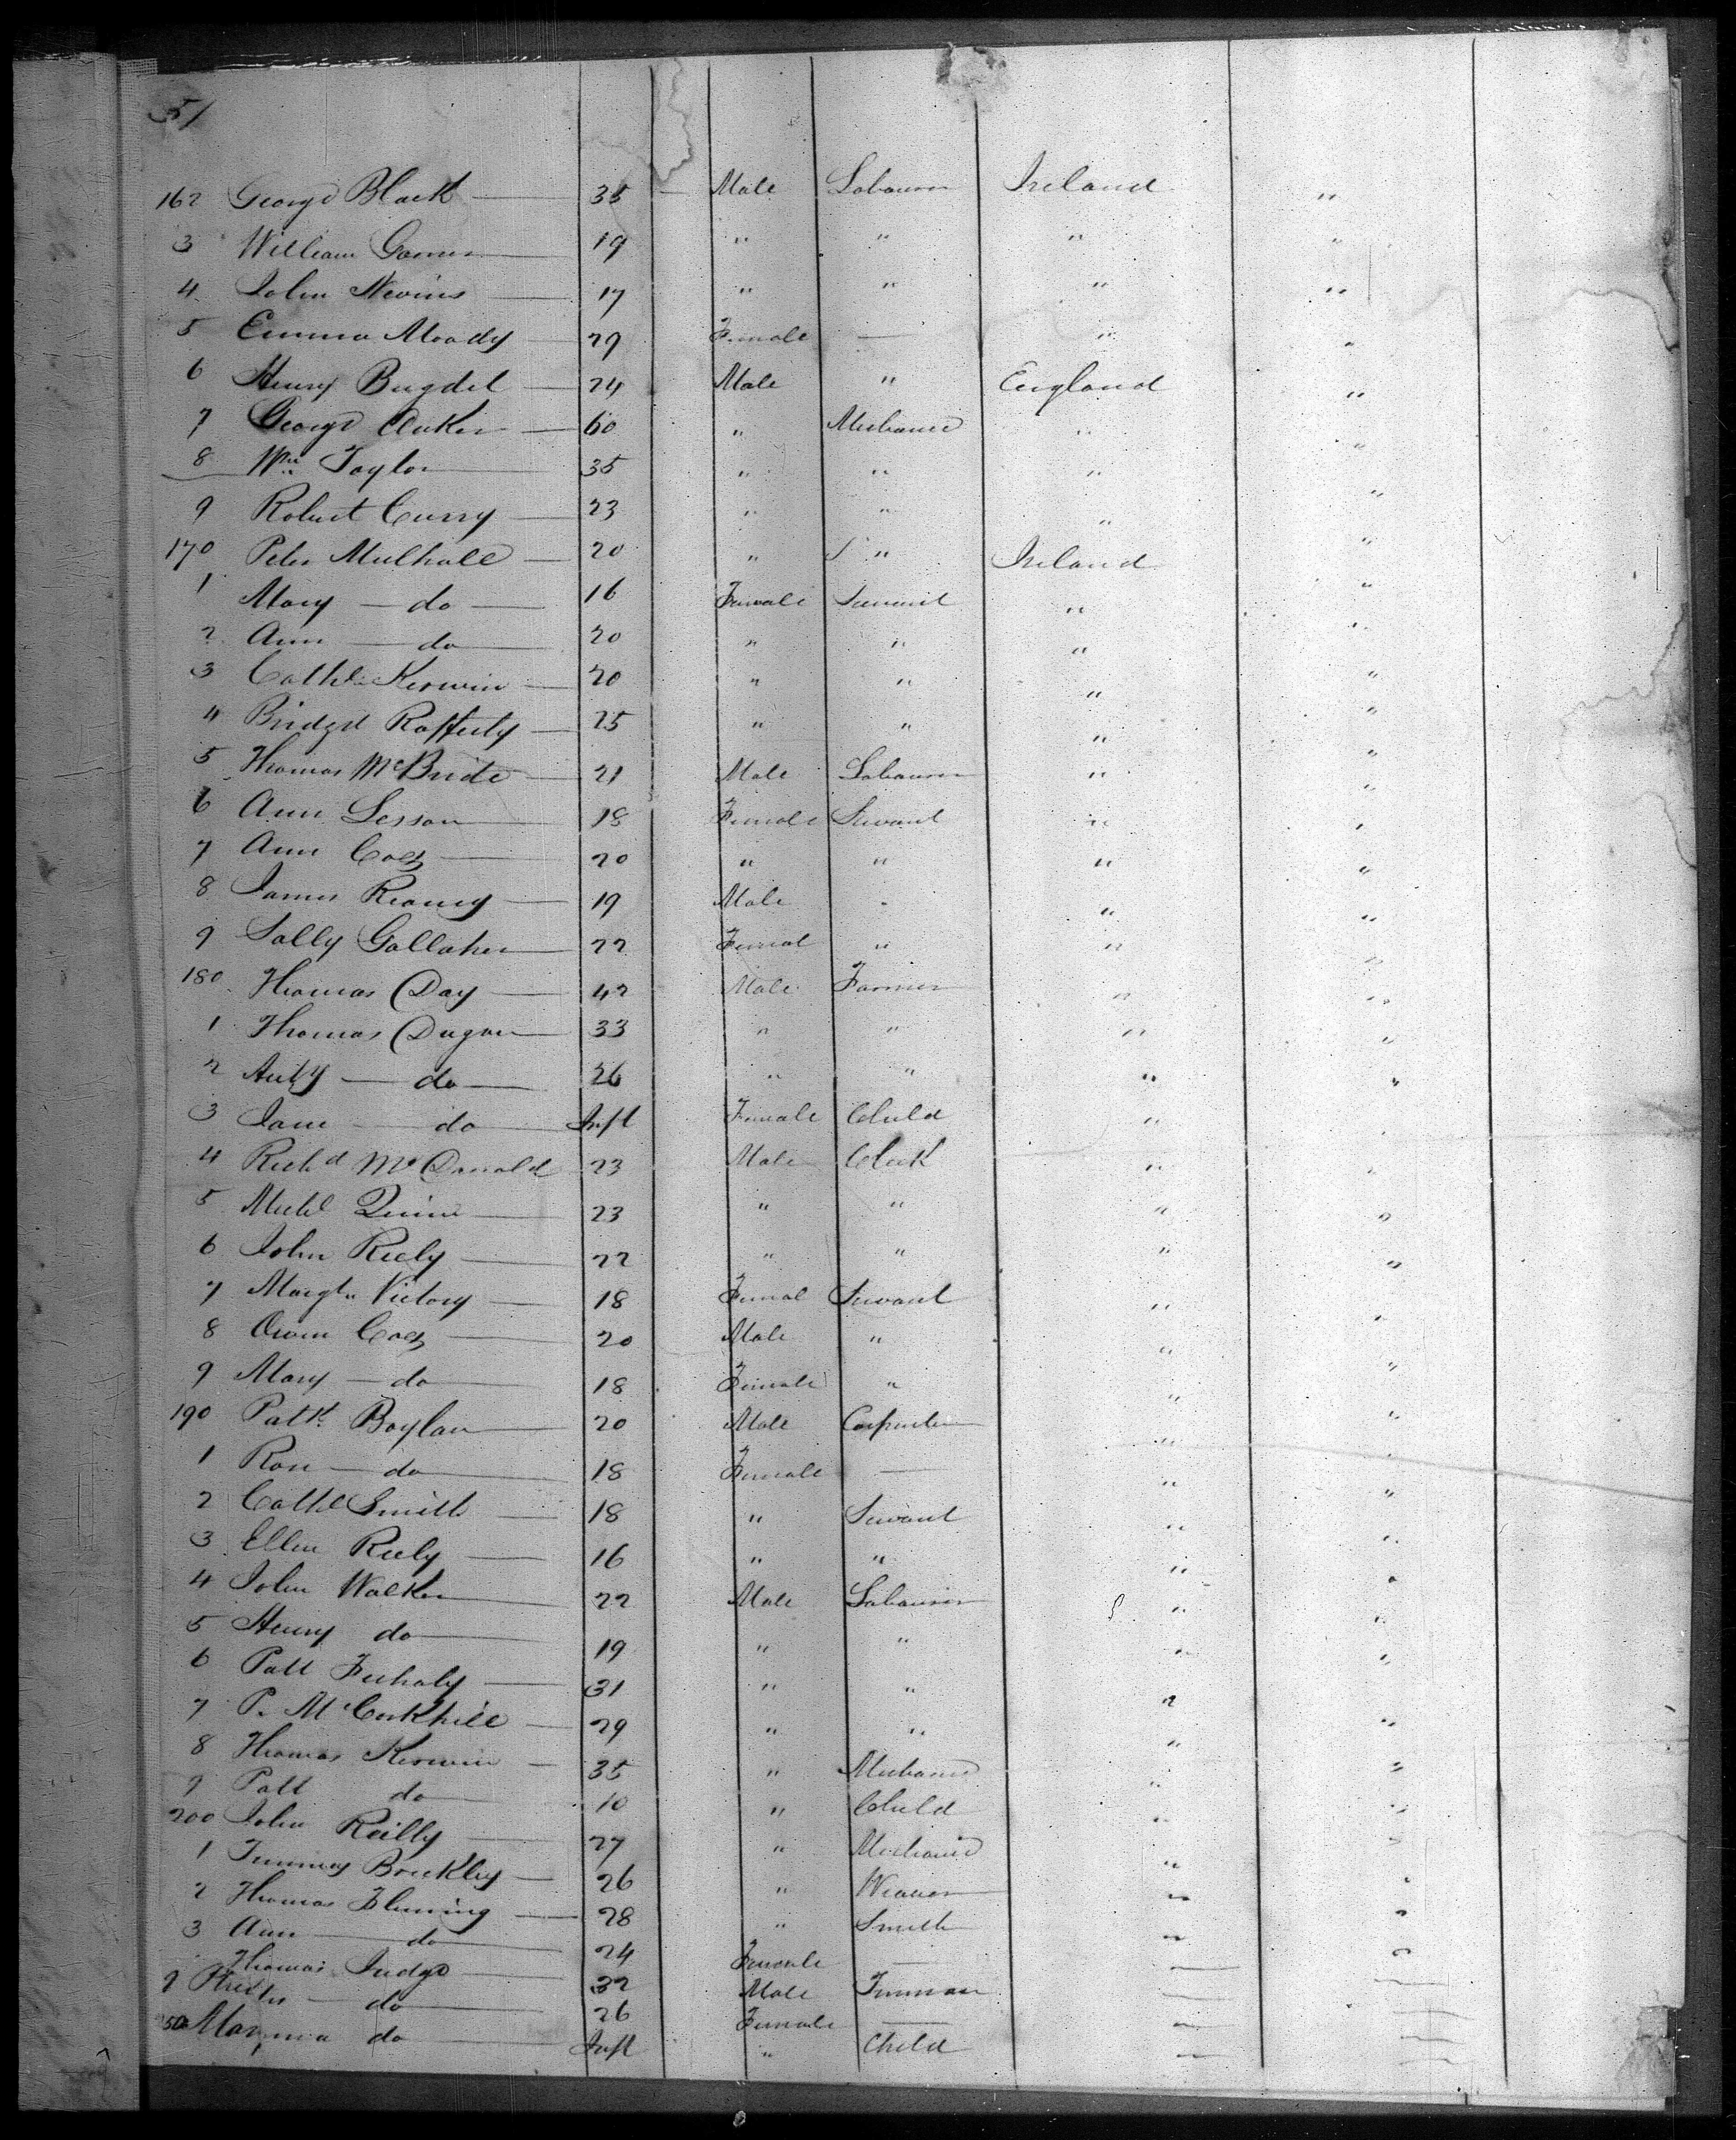 51
162 George Black 35 Male Labourer Ireland "
3 William Garner 19 " " " "
4 John Nevins 17 " " " "
5 Emma Moody 29 Female — " "
6 Henry Bugdel 24 Male " England "
7 George 60 " Mechanic " "
8 Wm Taylor 35 " " " "
9 Robert Curry 23 " " " "
170 Peter Mulhall 20 " " Ireland "
1 Mary do 16 Female Servant " "
2 Ann do 20 " " " "
3 Cathe Kerwin 20 " " " "
4 Bridget Rafferty 25 " " " "
5 Thomas McBride 21 Male Labourer " "
6 Ann Lesson 18 Female Servant " "
7 Ann 20 " " " "
8 James Reaney 19 Male " " "
9 Sally Gallaher 22 Femal " " "
180 Thomas Day 42 Male Farmer " "
1 Thomas Dugan 33 " " " "
2 do 26 " " " "
3 Jane do Inft Female Child " "
4 Richd McDonald 23 Male Clerk " "
5 Michl Quinn 23 " " " "
6 John Reely 22 " " " "
7 Margt Victory 18 Femal Servant " "
8 Owen 20 Male " " "
9 Mary do 18 Female " " "
190 Patk Boylan 20 Male Carpenter " "
1 Rose do 18 Female — " "
2 Cathe Smith 18 " Servant " "
3 Ellen Reely 16 " " " "
4 John Walker 22 Male Labourer " "
5 Henry do 19 " " " "
6 Patt 31 " " " "
7 P. McCorkhill 29 " " " "
8 Thomas Kerwin 35 " Mechanic " "
9 Patt do 10 " Child " "
200 John Reilly 27 " Mechanic " "
1 26 " Weaver " "
2 Thomas Fleming 28 " Smith " "
3 Ann do 24 Female — " "
Thomas Judge 32 Male
do 26 Female — " "
do Inft " Child " "